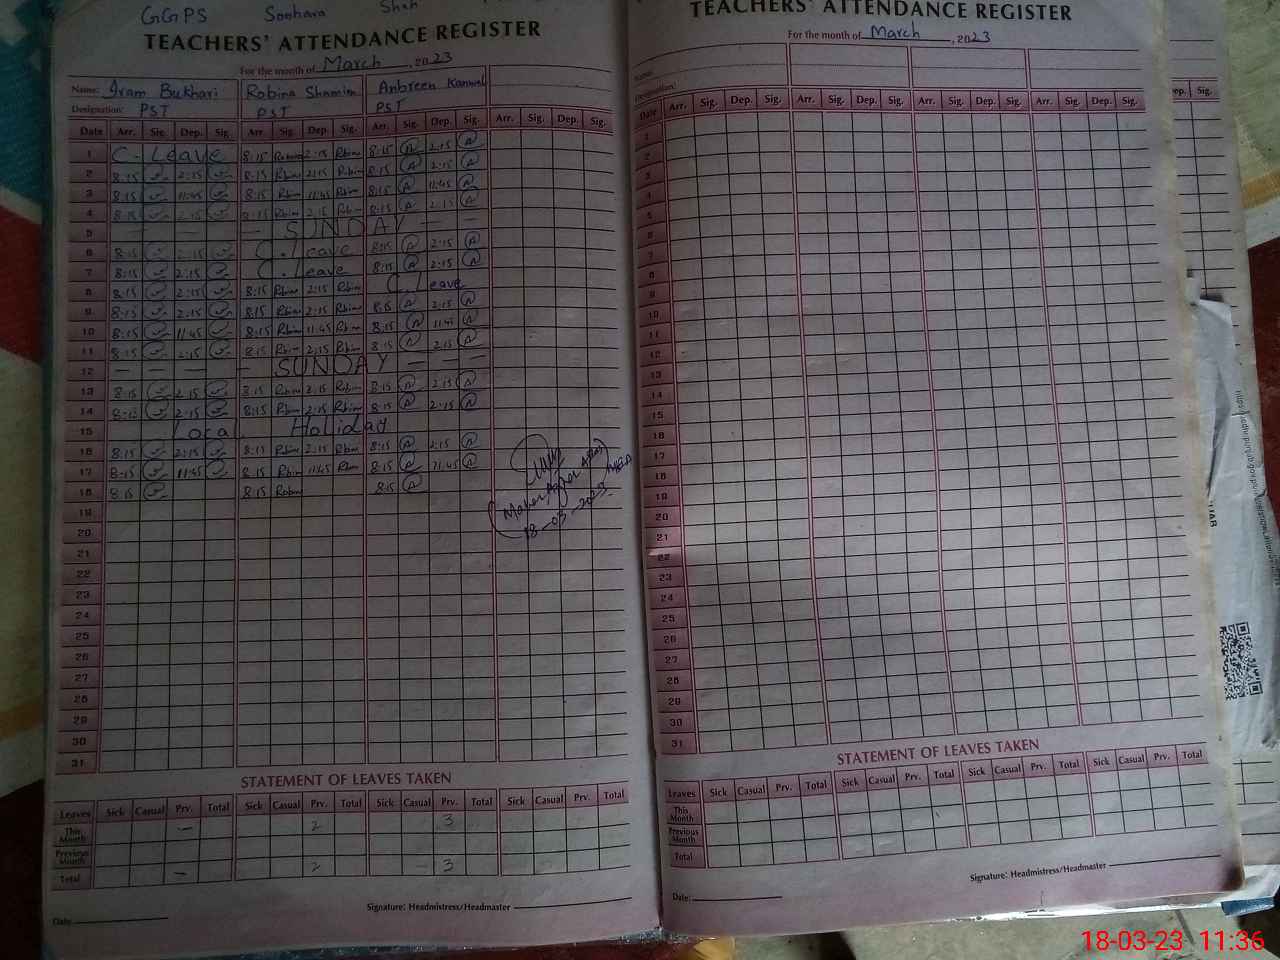 GGPS Sonhara Shah
TEACHERS' ATTENDANCE REGISTER
For the month of March, 2023
Name: Iram Bukhari Robina Shamim Anbreen Kanwal
Designation: PST PST PST
Date Arr. Sig. Dep. Sig. Arr. Sig. Dep. Sig. Arr. Sig. Dep. Sig. Arr. Sig. Dep. Sig.
1 C. Leave 8:15 Robina 2:15 Robin 8:15 2:15
2 8:15 2:15 8:15 Robin 2:15 Robin 8:15 2:15
3 8:15 11:45 8:15 Robin 11:45 Robin 8:15 11:45
4 8:15 2:15 8:15 Robin 2:15 Robin 8:15 2:15
5 — — — SUNDAY — —
6 8:15 2:15 C. Leave 8:15 2:15
7 8:15 2:15 C. Leave 8:15 2:15
8 8:15 2:15 8:15 Robin 2:15 Robin C. Leave
9 8:15 2:15 8:15 Robin 2:15 Robin 8:15 2:15
10 8:15 11:45 8:15 Robin 11:45 Robin 8:15 11:45
11 8:15 2:15 8:15 Robin 2:15 Robin 8:15 2:15
12 — — — — — SUNDAY — — —
13 8:15 2:15 8:15 Robin 2:15 Robin 8:15 2:15
14 8:15 2:15 8:15 Robin 2:15 Robin 8:15 2:15
15 Local Holiday
16 8:15 2:15 8:15 Robin 2:15 Robin 8:15 2:15
17 8:15 11:45 8:15 Robin 11:45 Robin 8:15 11:45
18 8:15 8:15 Robin 8:15
19
20
21
22
23
24
25
26
27
28
29
30
31
18-03-2023
STATEMENT OF LEAVES TAKEN
Leaves Sick Casual Prv. Total Sick Casual Prv. Total Sick Casual Prv. Total Sick Casual Prv. Total
This Month — 2 3
Previous Month
Total — 2 3
Signature: Headmistress/Headmaster
Date:
TEACHERS' ATTENDANCE REGISTER
For the month of March, 2023
Name:
Designation:
Date Arr. Sig. Dep. Sig. Arr. Sig. Dep. Sig. Arr. Sig. Dep. Sig. Arr. Sig. Dep. Sig.
1
2
3
4
5
6
7
8
9
10
11
12
13
14
15
16
17
18
19
20
21
22
23
24
25
26
27
28
29
30
31
STATEMENT OF LEAVES TAKEN
Leaves Sick Casual Prv. Total Sick Casual Prv. Total Sick Casual Prv. Total Sick Casual Prv. Total
This Month
Previous Month
Total
Signature: Headmistress/Headmaster
Date:
Dep. Sig.
18-03-23 11:36